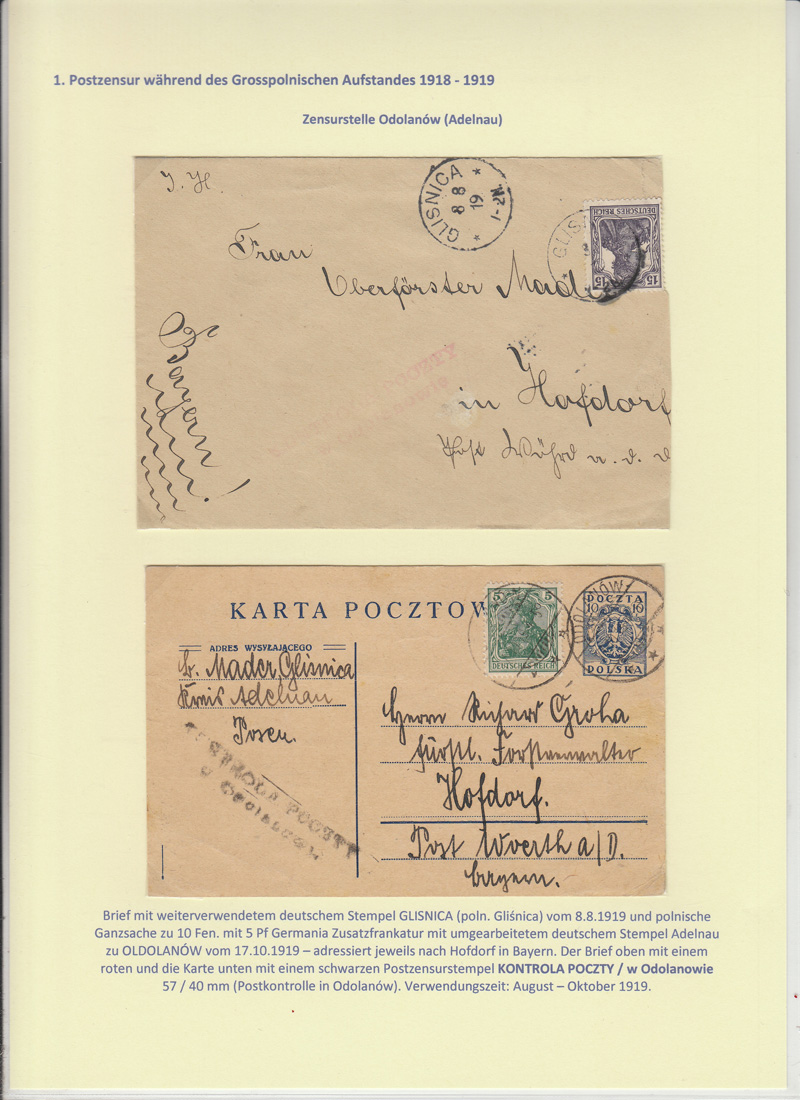 1. Postzensur während des Grosspolnischen Aufstandes 1918 - 1919
Zensurstelle Odolanów (Adelnau)
J. H.
GLISNICA
8 8
19
1-2N.
GLIS
DEUTSCHES REICH
15 15
Frau
Oberförster Mader
in Hofdorf
Post Wöhrd a. d. D
Bayern!
POCZTY
KARTA POCZTOW
ADRES WYSYŁAJĄCEGO
5 5
DEUTSCHES REICH
ODOLANÓW
POCZTA
10 10
POLSKA
Br. Mader, Glisnica
Kreis Adelnau
Posen.
KONTROLA POCZTY
w Odolanow
Herrn Richard Groha
fürstl. Forstverwalter
Hofdorf.
Post Woerth a/D.
Bayern.
Brief mit weiterverwendetem deutschem Stempel GLISNICA (poln. Gliśnica) vom 8.8.1919 und polnische
Ganzsache zu 10 Fen. mit 5 Pf Germania Zusatzfrankatur mit umgearbeitetem deutschem Stempel Adelnau
zu OLDOLANÓW vom 17.10.1919 – adressiert jeweils nach Hofdorf in Bayern. Der Brief oben mit einem
roten und die Karte unten mit einem schwarzen Postzensurstempel KONTROLA POCZTY / w Odolanowie
57 / 40 mm (Postkontrolle in Odolanów). Verwendungszeit: August – Oktober 1919.